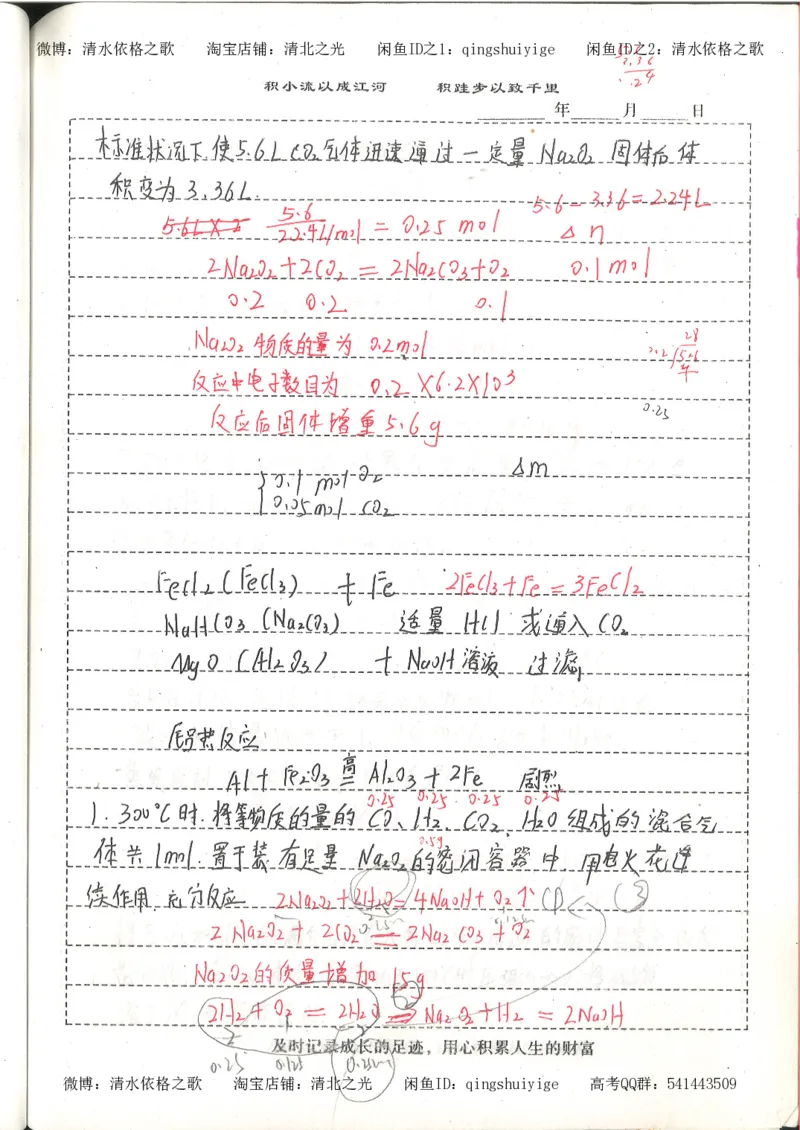 微博：清水依格之歌 淘宝店铺：清北之光 闲鱼ID之1：qingshuiyige 闲鱼ID之2：清水依格之歌
积小流以成江河 积跬步以致千里
年 月 日
标准状况下使5.6L CO₂气体迅速通过一定量 Na₂O₂ 固体后体
积变为 3.36L.
5.6-3.36=2.24L
5.6/22.4L/mol = 0.25 mol Δn
2Na₂O₂+2CO₂ = 2Na₂CO₃+O₂ 0.1mol
0.2 0.2 0.1
Na₂O₂ 物质的量为 0.2mol
反应中电子数目为 0.2×6.2×10³
0.25
反应后固体增重5.6g
0.1 mol O₂ Δm
0.05mol CO₂
FeCl₂ (FeCl₃) + Fe 2FeCl₃+Fe = 3FeCl₂
NaHCO₃ (Na₂CO₃) 适量 HCl 或通入 CO₂
MgO (Al₂O₃) + NaOH溶液 过滤
铝热反应
Al+ Fe₂O₃ 高= Al₂O₃ + 2Fe 剧烈
0.25 0.25 0.25 0.25
1. 300℃时.将等物质的量的 CO、H₂、CO₂、H₂O 组成的混合气
0.5g
体共1mol.置于装有足量 Na₂O₂的密闭容器中 用电火花连
续作用.充分反应 2Na₂O₂+2H₂O=4NaOH+O₂↑ ① ③
2Na₂O₂+ 2CO₂ = 2Na₂CO₃+O₂
Na₂O₂的质量增加 15g
2H₂+O₂ = 2H₂O ② ⇒ Na₂O₂+H₂ = 2NaOH
2 1 2
及时记录成长的足迹，用心积累人生的财富
0.25 0.125 0.25m
微博：清水依格之歌 淘宝店铺：清北之光 闲鱼ID：qingshuiyige 高考QQ群：541443509